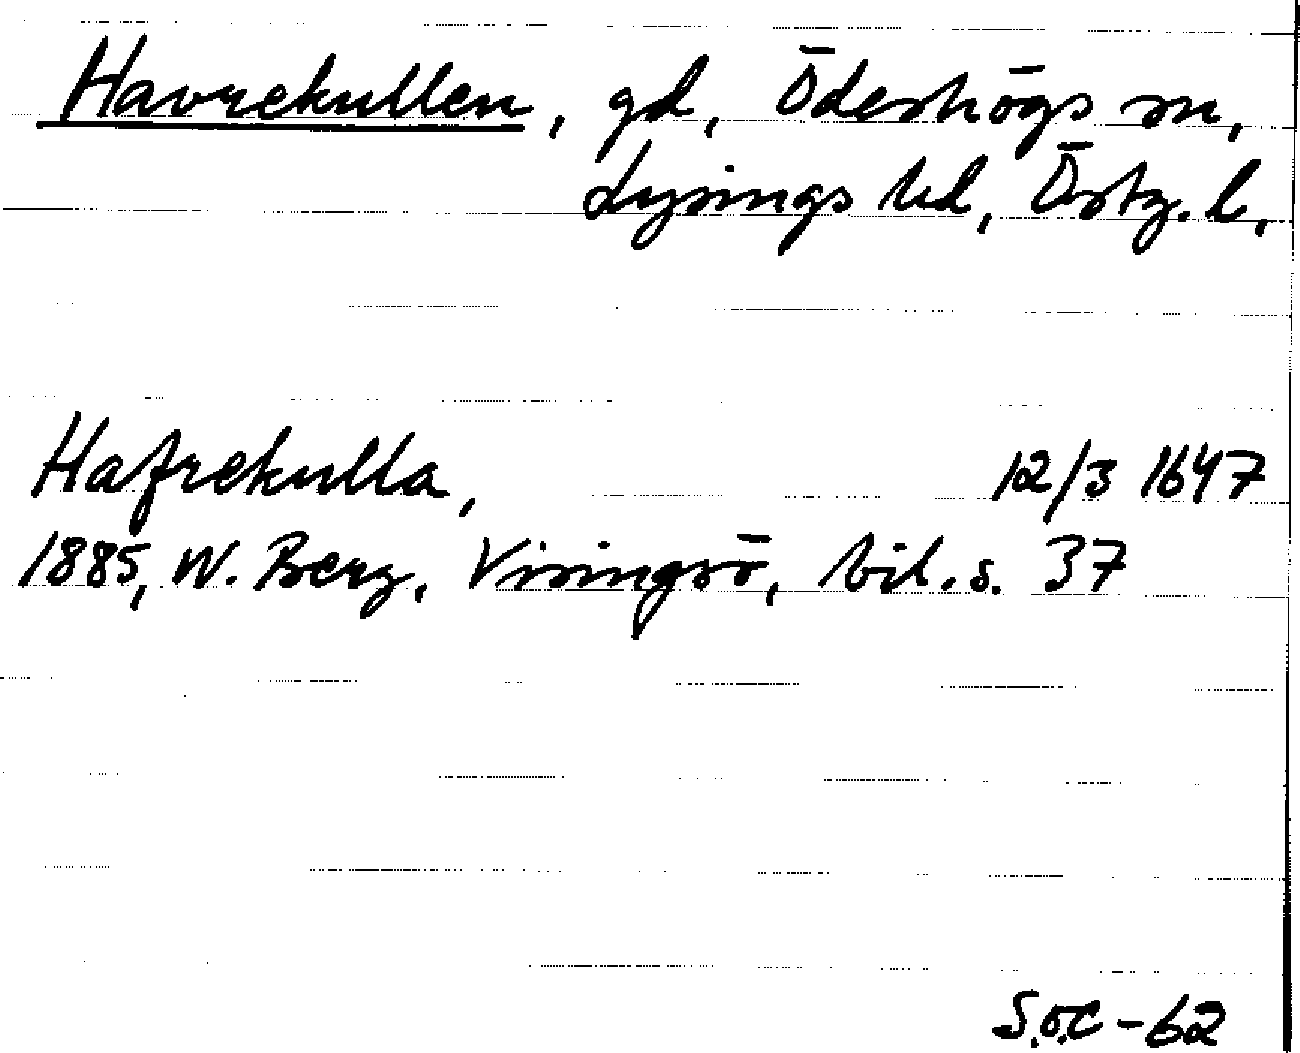 Havrekullen, gd, Ödeshögs sn,
Lysings hd, Östg. l.
Hafrekulla, 12/3 1647
1885, W. Berg, Visingsö, bil. s. 37
S.ö.C -62